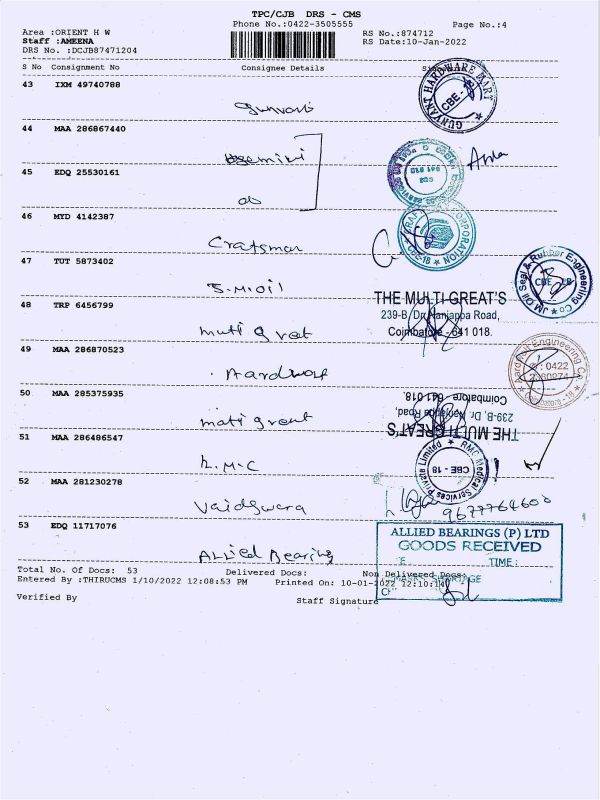 TPC/CJB DRS - CMS
Phone No.:0422-3505555
Page No.:4
Area :ORIENT H W
RS No.:874712
Staff :AMEENA
RS Date:10-Jan-2022
DRS No. :DCJB87471204
S No Consignment No Consignee Details
43 IXM 49740788
GUNVANT HARDWARE MART
CBE -
44 MAA 286867440
45 EDQ 25530161
do
46 MYD 4142387
Craftsman
CRAFT CORPORATION
CBE-18
47 TUT 5873402
J.M.Oil
JM Oil Seal & Rubber Engineering Co
CBE - 18
48 TRP 6456799
muti great
THE MULTI GREAT'S
239-B, Dr. Nanjappa Road,
Coimbatore - 641 018.
49 MAA 286870523
Aardwolf
50 MAA 285375935
mati great
THE MULTI GREAT'S
239-B, Dr. Nanjappa Road,
Coimbatore 641 018.
51 MAA 286486547
R.M.C
RMC Medical Services Private Limited
CBE - 18
52 MAA 281230278
Vaidswara
53 EDQ 11717076
Allied Bearing
ALLIED BEARINGS (P) LTD
GOODS RECEIVED
TIME :
SHORTAGE
Total No. Of Docs: 53 Delivered Docs: Non Delivered Docs:
Entered By :THIRUCMS 1/10/2022 12:08:53 PM Printed On: 10-01-2022 12:10:14
Verified By Staff Signature